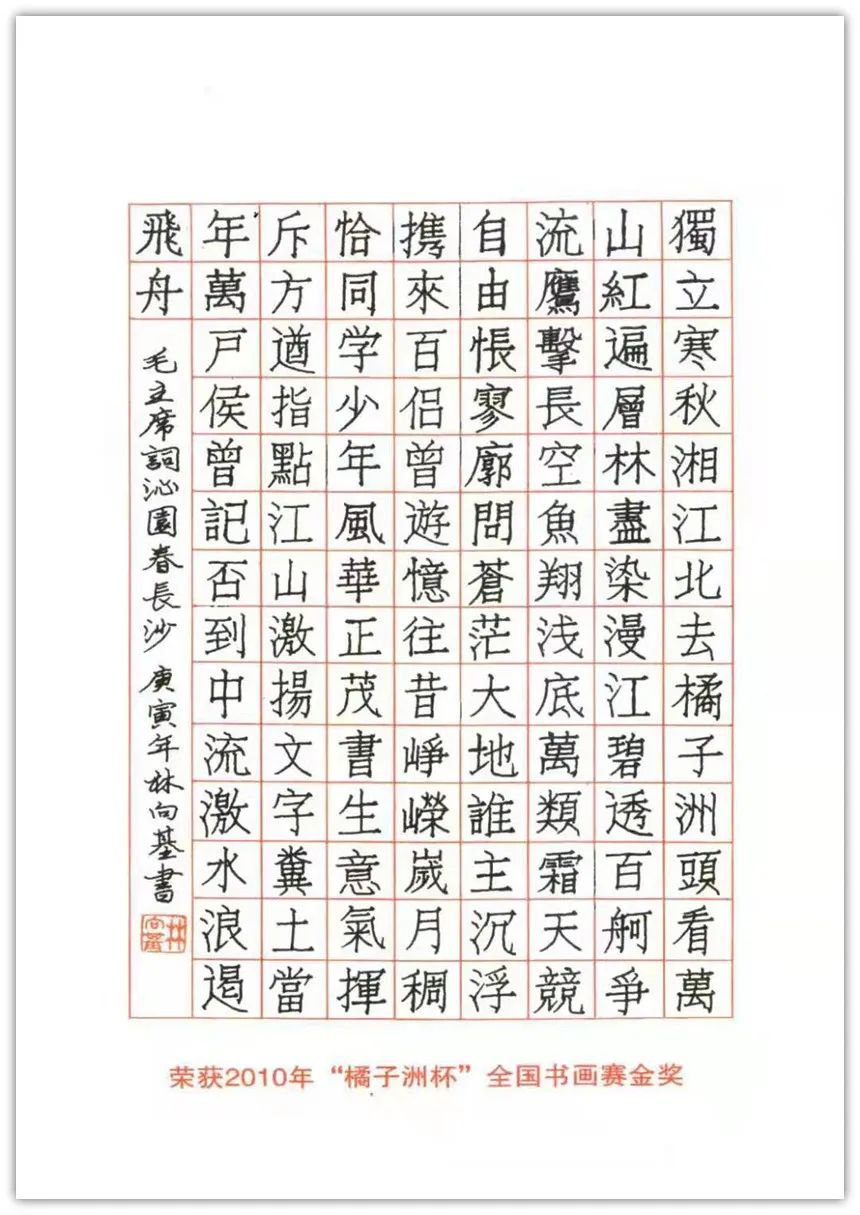 獨立寒秋湘江北去橘子洲頭看萬
山紅遍層林盡染漫江碧透百舸爭
流鷹擊長空魚翔浅底萬類霜天競
自由悵寥廓問蒼茫大地誰主沉浮
携來百侣曾遊憶往昔崢嶸嵗月稠
恰同学少年風華正茂書生意氣揮
斥方遒指點江山激揚文字糞土當
年萬戸侯曾記否到中流激水浪遏
飛舟
毛主席詞沁園春長沙 庚寅年林向基書
林向基
荣获2010年“橘子洲杯”全国书画赛金奖